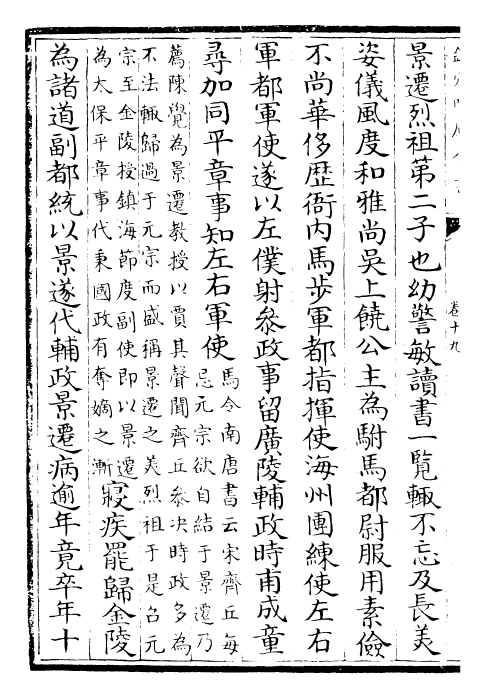 卷十九
景遷烈祖第二子也幼警敏讀書一覧輙不忘及長美
姿儀風度和雅尚吳上饒公主為駙馬都尉服用素儉
不尚華侈歴衙内馬步軍都指揮使海州團練使左右
軍都軍使遂以左僕射叅政事留廣陵輔政時甫成童
尋加同平章事知左右軍使馬令南唐書云宋齊丘每
忌元宗欲自結于景遷乃
薦陳覺為景遷教授以賈其聲聞齊丘叅决時政多為
不法輙歸過于元宗而盛稱景遷之美烈祖于是召元
宗至金陵授鎮海節度副使即以景遷
為太保平章事代秉國政有奪嫡之漸寢疾罷歸金陵
為諸道副都統以景遂代輔政景遷病逾年竟卒年十